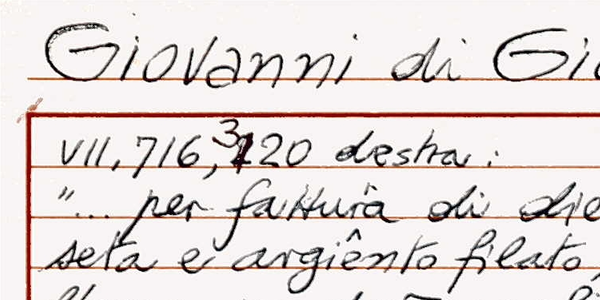 Giovanni di Gio
VII, 716, 320 destra:
"... per fattura di die
seta e argiênto filato,